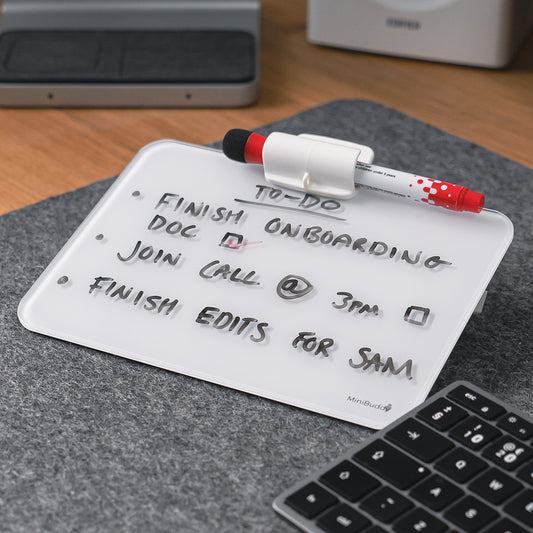 TO-DO
• FINISH ONBOARDING
DOC ☐
• JOIN CALL @ 3PM ☐
• FINISH EDITS FOR SAM
MiniBuddy
esc
Q W
A S